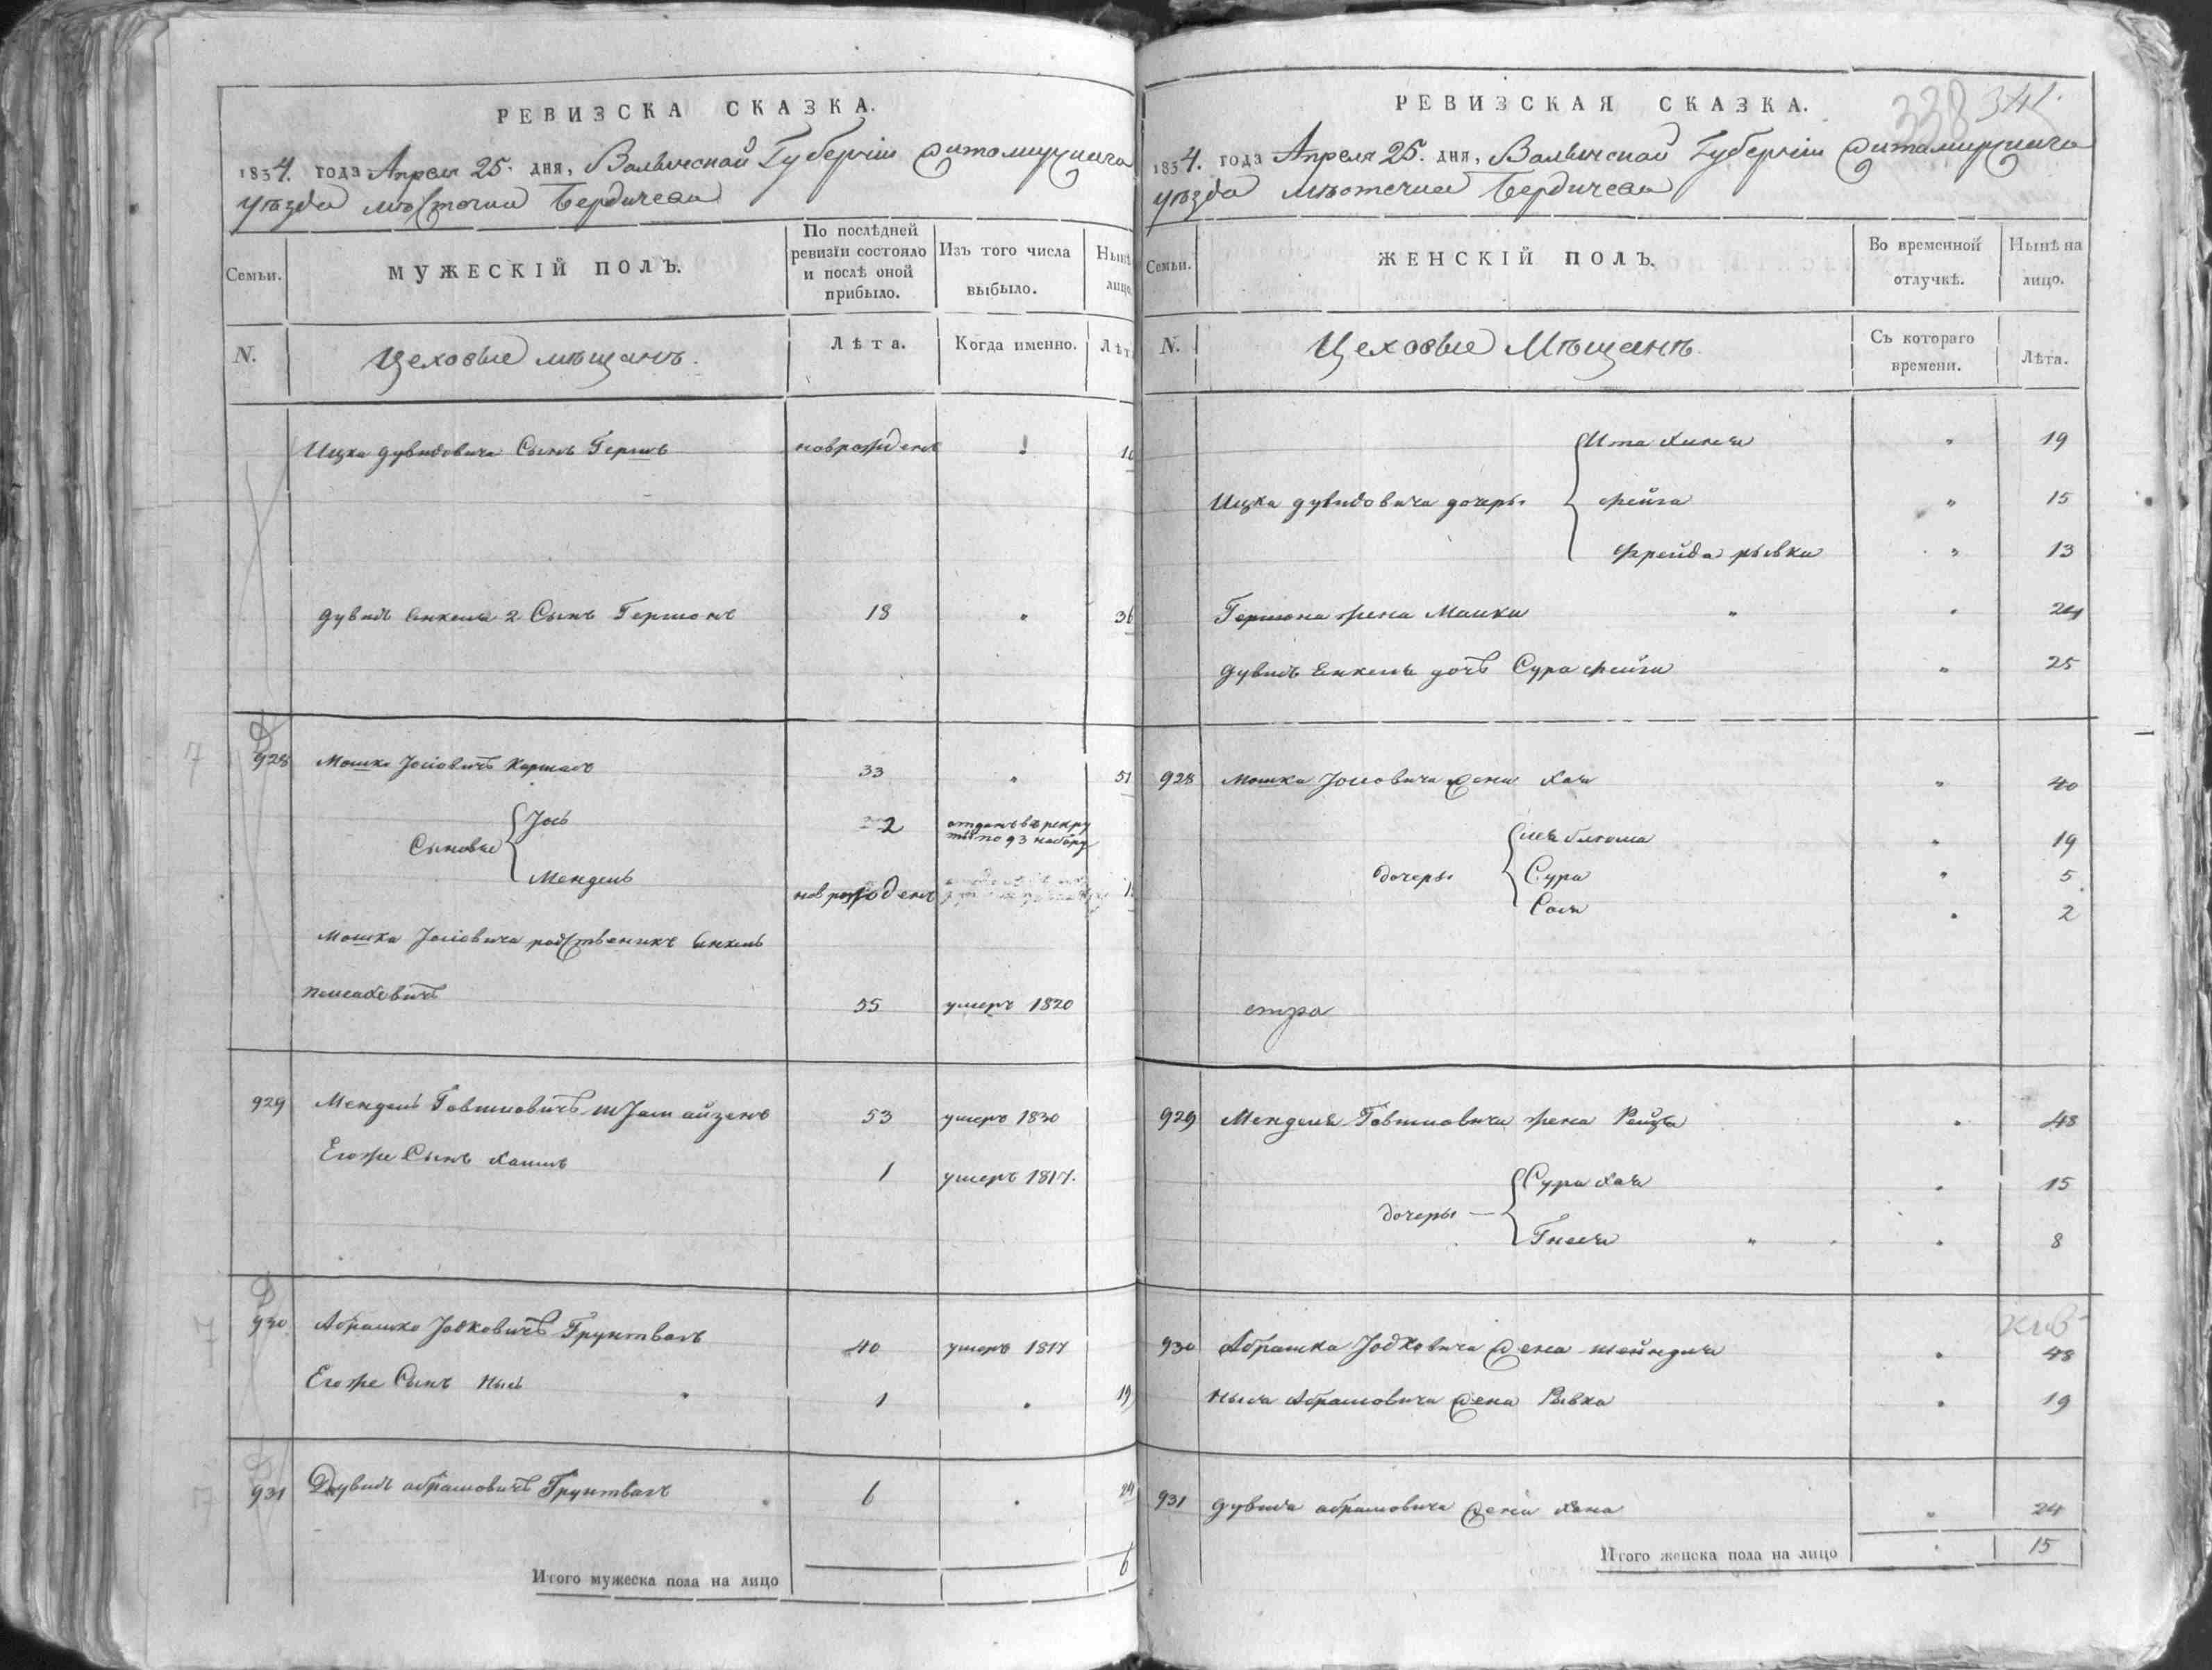 РЕВИЗСКА СКАЗКА.
1834. года Апреля 25. дня, Волынской Губерніи Житомирскаго
уѣзда мѣстечка Бердичева
Семьи.
МУЖЕСКІЙ ПОЛЪ.
По послѣдней ревизіи состояло и послѣ оной прибыло.
Изъ того числа выбыло.
Нынѣ лицо
N.
Цеховые мѣщанъ.
Лѣта.
Когда именно.
Лѣт
Ицка Дувидовича Сынъ Гершъ новрожденъ
Дувидъ Енкеля 2 Сынъ Гершонъ 18 " 36
928 Мошко Іосіовичъ 33 " 51
Сыновье Іось 2 отданъ въ рекруты по 93 набору
Мендель новрожденъ
Мошка Іосіовича родственикъ Енкель
55 умеръ 1820
929 Мендель 53 умеръ 1830
Его же Сынъ Хаимъ 1 умеръ 1817.
930 Абрашко Іосковичъ Грунтвагъ 40 умеръ 1817
Его же Сынъ Нысь 1 " 19
931 Дувидъ Абрамовичъ Грунтвагъ 6 " 24
Итого мужеска пола на лицо 6
338 341
РЕВИЗСКАЯ СКАЗКА.
1834. года Апреля 25. дня, Волынской Губерніи Житомирскаго
уѣзда мѣстечка Бердичева
Семьи.
ЖЕНСКІЙ ПОЛЪ.
Во временной отлучкѣ.
Нынѣ на лицо.
N.
Цеховые Мѣщанъ.
Съ котораго времени.
Лѣта.
Ита " 19
Ицка Дувидовича дочеры Фейга " 15
Фрейда рывка " 13
Гершона жена Малка " 24
Дувидъ Енкеля дочь Сура Фейга " 25
928 Мошка Іосіовича жена Хая " 40
" 19
дочеры Сура " 5
Сося " 2
929 Менделя жена Рейзя " 48
Сура Хая " 15
дочеры — Гнеся " 8
930 Абрашка Іосковича жена Шейндля " 48
Ныся Абрамовича жена Рывка " 19
931 Дувида Абрамовича жена Хана " 24
Итого женска пола на лицо " 15